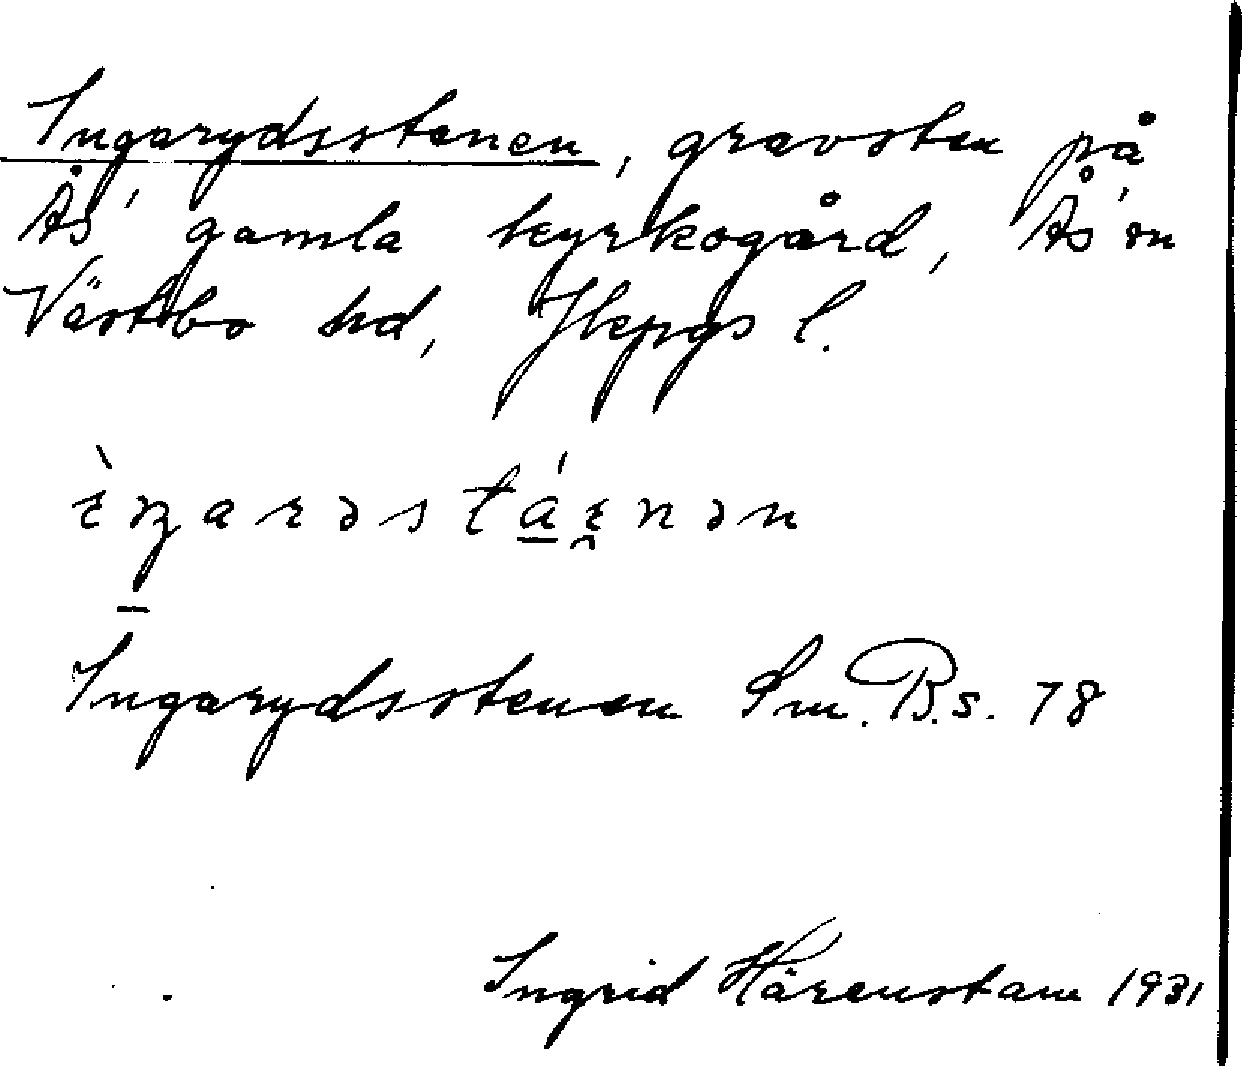 Ingarydsstenen, gravsten på
Ås' gamla kyrkogård, Ås' sn
Västbo hd, Jkpgs l.
Ingarydsstenen Sm. B. s. 78
Ingrid Härenstam 1931